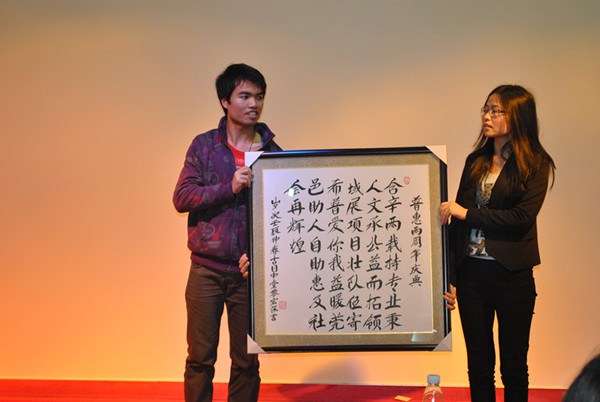 普惠两周年庆典
含辛两载持专业秉
人文承公益而拓领
域展项目壮队伍寄
希普爱你我益暖莞
邑助人自助惠及社
会再辉煌
岁次壬辰仲春吉日中堂黎宏深书